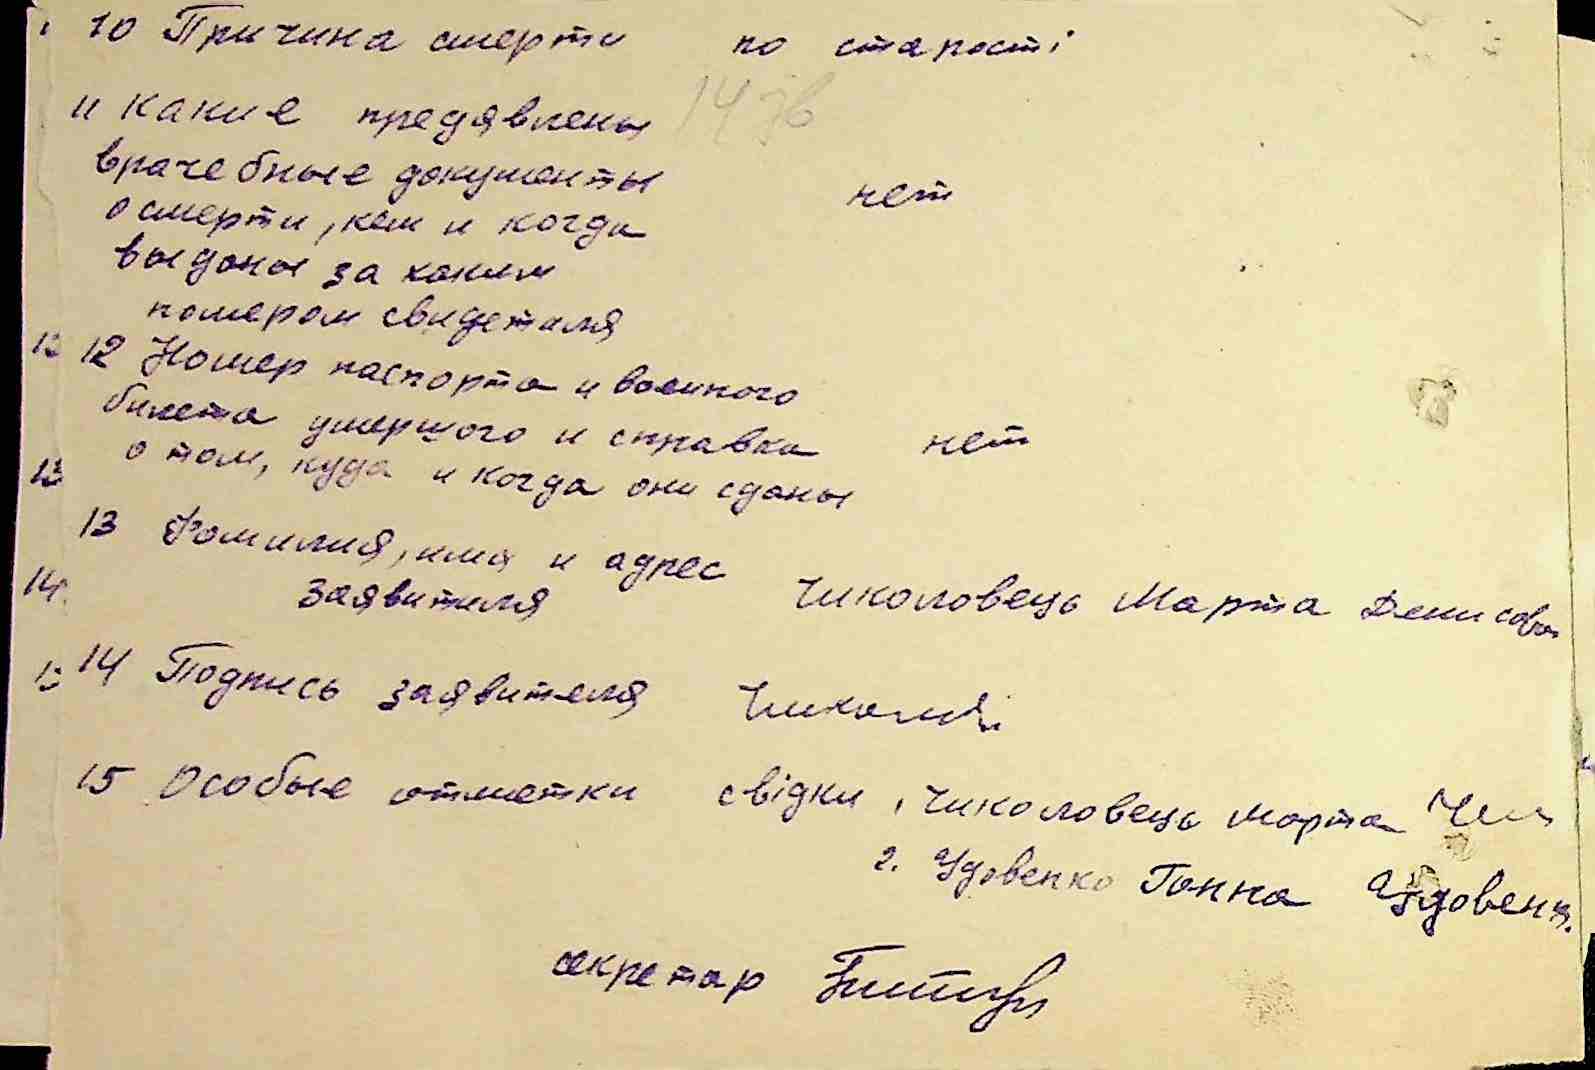 10 Причина смерти по старості
14 зв
11 Какие предявлены
врачебные документы нет
о смерти, кем и когда
выданы за каким
номером свидетеля
12 12 Номер паспорта и военного
билета умершого и справка нет
о том, куда и когда они сданы
13
13 Фамилия, имя и адрес
14. заявителя Чиколовець Марта Денисовна
14 Подпись заявителя
15 Особые отметки свідки 1 Чиколовець Марта
2. Удовенко Ганна Удовенк.
секретар